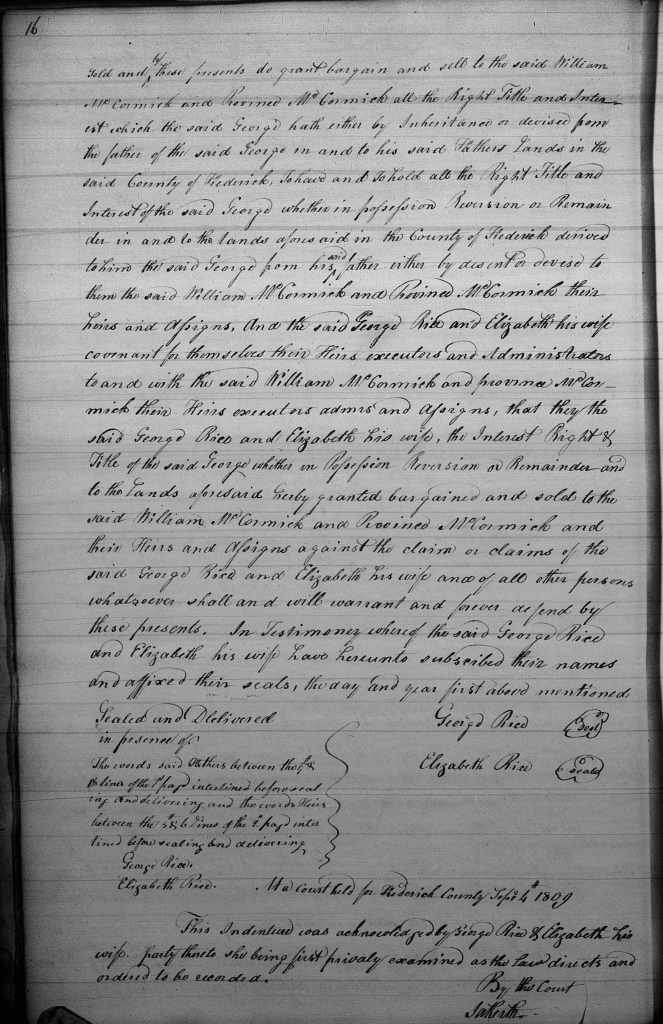 16
Sold and by these presents do grant bargain and sell to the said William
McCormick and Provined McCormick all the Right Title and Inter-
est which the said George hath either by Inheritance or devised from
the father of the said George in and to his said Fathers Lands in the
said County of Frederick, To have and To hold all the Right Title and
Interest of the said George whether in possession Reversion or Remain
der in and to the lands aforesaid in the County of Frederick derived
to him the said George from his said father either by descent or devise to
them the said William McCormick and Provined McCormick their
heirs and assigns, And the said George Rice and Elizabeth his wife
covenant for themselves their Heirs executors and Administrators
to and with the said William McCormick and province McCor-
mick their Heirs executors admrs and assigns, that they the
said George Rice and Elizabeth his wife, the Interest Right &
Title of the said George whether in Possession Reversion or Remainder and
to the Lands aforesaid hereby granted bargained and sold to the
said William McCormick and Provined McCormick and
their Heirs and assigns against the claim or claims of the
said George Rice and Elizabeth his wife and of all other persons
whatsoever shall and will warrant and forever defend by
these presents. In Testimoney whereof the said George Rice
and Elizabeth his wife have hereunto subscribed their names
and affixed their seals, the day and year first above mentioned
Sealed and Delivered George Rice Seal
in presence of
The words said Fathers between the & Elizabeth Rice Seal
lines of the 1st page interlined before seal
ing and delivering and the words Heirs
between the 5 & 6 lines of the 2 page inter
lined before sealing and delivering
George Rice.
Elizabeth Rice. At a Court held for Frederick County Sept 4th 1809
This Indenture was acknowledged by George Rice & Elizabeth his
wife party thereto she being first privaly examined as the Law directs and
ordered to be recorded. By the Court